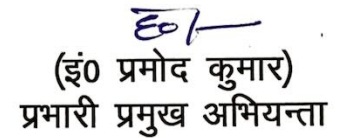 ह0/-
(इं0 प्रमोद कुमार)
प्रभारी प्रमुख अभियन्ता